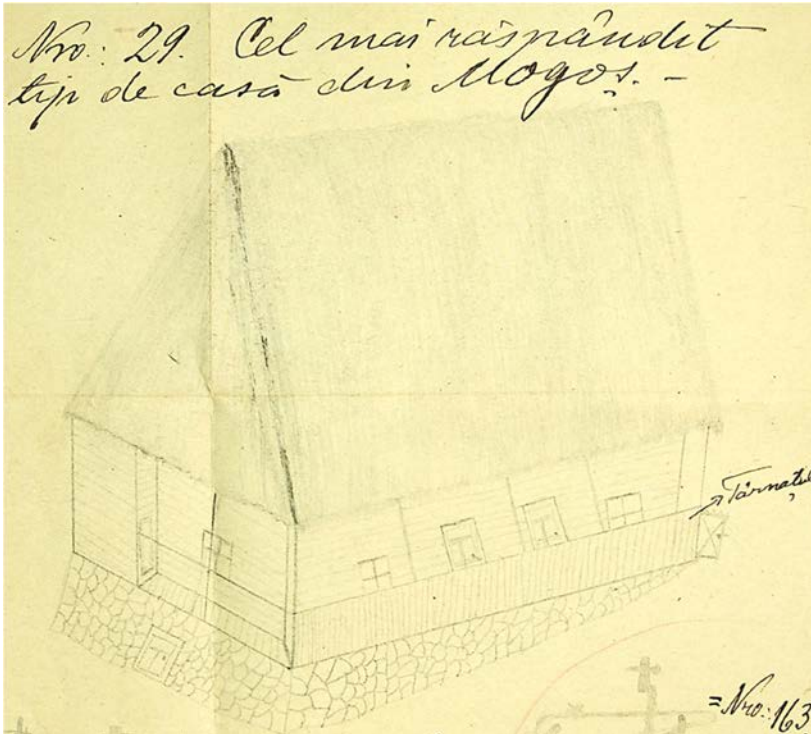 Nro.: 29. Cel mai răspândit
tip de casă din Mogoș. –
Târnațul
= Nro: 163